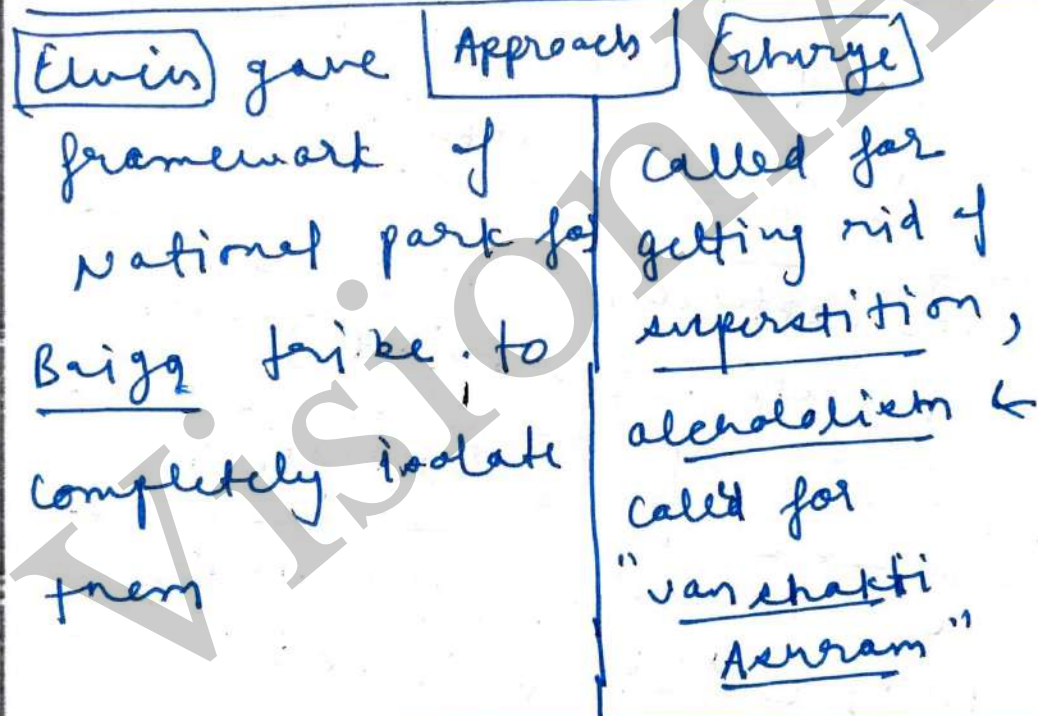 Approach
Elwin gave
framework of
National park for
Baiga tribe to
completely isolate
them
Ghurye
Called for
getting rid of
superstition,
alchololism &
called for
"van shakti
Asrram"
VisionIA